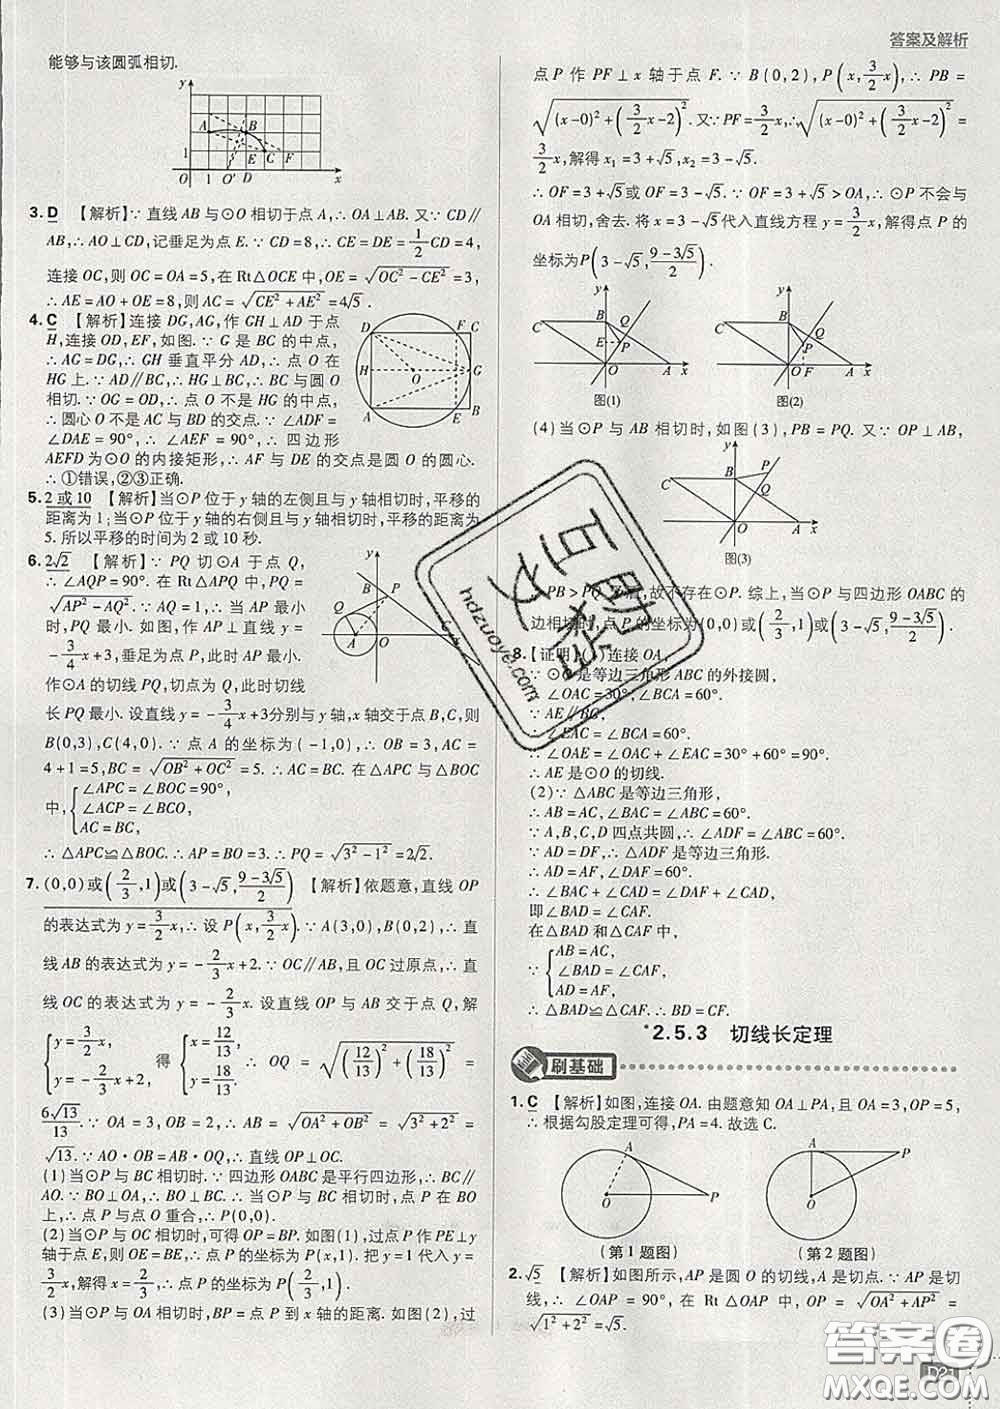 答案及解析
能够与该圆弧相切.
y
A B
1 E C F
O 1 O' D x
3. D 【解析】∵ 直线 AB 与⊙O 相切于点 A,∴ OA⊥AB. 又∵ CD∥
AB,∴ AO⊥CD,记垂足为点 E.∵ CD=8,∴ CE=DE=1/2CD=4,
连接 OC,则 OC=OA=5,在 Rt△OCE 中,OE=√(OC²-CE²)=3,
∴ AE=AO+OE=8,则 AC=√(CE²+AE²)=4√5.
4. C 【解析】连接 DG,AG,作 GH⊥AD 于点
H,连接 OD,EF,如图.∵ G 是 BC 的中点,
∴ AG=DG,∴ GH 垂直平分 AD,∴ 点 O 在
HG 上.∵ AD∥BC,∴ HG⊥BC,∴ BC 与圆 O
相切.∵ OG=OD,∴ 点 O 不是 HG 的中点,
∴ 圆心 O 不是 AC 与 BD 的交点.∵ ∠ADF=
∠DAE=90°,∴ ∠AEF=90°,∴ 四边形
AEFD 为⊙O 的内接矩形,∴ AF 与 DE 的交点是圆 O 的圆心.
∴ ①错误,②③正确.
D F C
H O G
A E B
5. 2 或 10 【解析】当⊙P 位于 y 轴的左侧且与 y 轴相切时,平移的
距离为 1;当⊙P 位于 y 轴的右侧且与 y 轴相切时,平移的距离为
5. 所以平移的时间为 2 或 10 秒.
6. 2√2 【解析】∵ PQ 切⊙A 于点 Q,
∴ ∠AQP=90°. 在 Rt△APQ 中,PQ=
√(AP²-AQ²).∵ AQ=1,∴ 当 AP 最小
时,PQ 最小. 如图,作 AP⊥直线 y=
-3/4x+3,垂足为点 P,此时 AP 最小.
作⊙A 的切线 PQ,切点为 Q,此时切线
长 PQ 最小. 设直线 y=-3/4x+3分别与 y 轴,x 轴交于点 B,C,则
B(0,3),C(4,0).∵ 点 A 的坐标为(-1,0),∴ OB=3,AC=
4+1=5,BC=√(OB²+OC²)=5.∴ AC=BC. 在△APC 与△BOC
中,{∠APC=∠BOC=90°,
∠ACP=∠BCO,
AC=BC,
∴ △APC≌△BOC.∴ AP=BO=3.∴ PQ=√(3²-1²)=2√2.
7. (0,0)或(2/3,1)或(3-√5,(9-3√5)/2) 【解析】依题意,直线 OP
的表达式为 y=3/2x,∴ 设 P(x,3/2x).∵ A(3,0),B(0,2),∴ 直
线 AB 的表达式为 y=-2/3x+2.∵ OC∥AB,且 OC 过原点,∴ 直
线 OC 的表达式为 y=-2/3x. 设直线 OP 与 AB 交于点 Q,解
{y=3/2x, y=-2/3x+2 得 {x=12/13, y=18/13. ∴ OQ=√((12/13)²+(18/13)²)=
6√13/13.∵ OA=3,OB=2,∴ AB=√(OA²+OB²)=√(3²+2²)=
√13.∵ AO·OB=AB·OQ,∴ 直线 OP⊥OC.
(1)当⊙P 与 BC 相切时:∵ 四边形 OABC 是平行四边形,∴ BC∥
AO.∵ BO⊥OA,∴ BO⊥BC.∴ 当⊙P 与 BC 相切时,点 P 在 BO
上,∴ 点 P 与点 O 重合,∴ P(0,0).
(2)当⊙P 与 OC 相切时,可得 OP=BP. 如图(1),过点 P 作 PE⊥y
轴于点 E,则 OE=BE,∴ 点 P 的坐标为 P(x,1). 把 y=1 代入 y=
3/2x,解得 x=2/3,∴ 点 P 的坐标为 P(2/3,1).
(3)当⊙P 与 OA 相切时,BP=点 P 到 x 轴的距离. 如图(2),过
点 P 作 PF⊥x 轴于点 F.∵ B(0,2),P(x,3/2x),∴ PB=
√((x-0)²+(3/2x-2)²). 又∵ PF=3/2x,∴ √((x-0)²+(3/2x-2)²)=
3/2x,解得 x₁=3+√5,x₂=3-√5.
∴ OF=3+√5或 OF=3-√5.∵ OF=3+√5>OA,∴ ⊙P 不会与
OA 相切,舍去. 将 x=3-√5代入直线方程 y=3/2x,解得点 P 的
坐标为P(3-√5,(9-3√5)/2).
图(1)
图(2)
(4)当⊙P 与 AB 相切时,如图(3),PB=PQ. 又∵ OP⊥AB,
图(3)
PB>PQ 故不存在⊙P. 综上,当⊙P 与四边形 OABC 的
边相切时,点 P 的坐标为(0,0)或(2/3,1)或(3-√5,(9-3√5)/2).
8. 【证明】(1)连接 OA,
∵ ⊙O 是等边三角形 ABC 的外接圆,
∴ ∠OAC=30°,∠BCA=60°.
∵ AE∥BC,
∴ ∠EAC=∠BCA=60°.
∴ ∠OAE=∠OAC+∠EAC=30°+60°=90°.
∴ AE 是⊙O 的切线.
(2)∵ △ABC 是等边三角形,
∴ AB=AC,∠BAC=∠ABC=60°.
∵ A,B,C,D 四点共圆,∴ ∠ADF=∠ABC=60°.
∵ AD=DF,∴ △ADF 是等边三角形.
∴ AD=AF,∠DAF=60°.
∴ ∠BAC+∠CAD=∠DAF+∠CAD,
即∠BAD=∠CAF.
在△BAD 和△CAF 中,
∵ {AB=AC,
∠BAD=∠CAF,
AD=AF,
∴ △BAD≌△CAF.∴ BD=CF.
*2.5.3 切线长定理
刷基础
1. C 【解析】如图,连接 OA. 由题意知 OA⊥PA,且 OA=3,OP=5,
∴ 根据勾股定理可得,PA=4. 故选 C.
(第 1 题图)
(第 2 题图)
2. √5 【解析】如图所示,AP 是圆 O 的切线,A 是切点.∵ AP 是切
线,∴ ∠OAP=90°,在 Rt△OAP 中,OP=√(OA²+AP²)=
√(1²+2²)=√5.
D21
互助文档
hdzuoye.com
答案圈
MXQE.COM